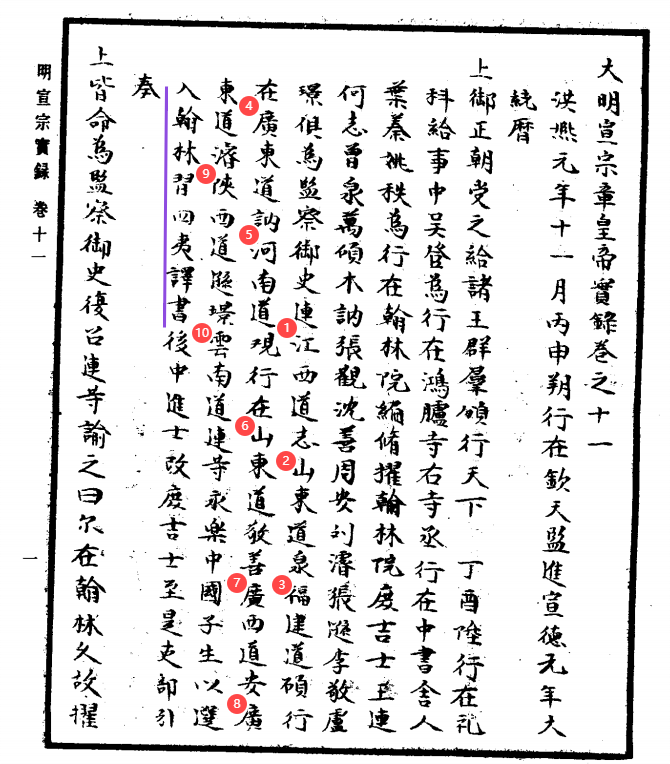 大明宣宗章皇帝實錄卷之十一
洪熙元年十一月丙申朔行在欽天監進宣德元年大
統曆
上御正朝受之給諸王群臣頒行天下 丁酉陞行在礼
科給事中吴啓為行在鴻臚寺右寺丞行在中書舍人
葉蓁姚秩為行在翰林院編脩擢翰林院庶吉士王連
何志曾泉萬碩木訥張觀沈善周安刘濬張李敬盧
璟俱為監察御史連1江西道志2山東道泉3福建道碩行
在4廣東道訥5河南道現行在6山東道敬善7廣西道安8廣
東道濬9陝西道璟10雲南道連等永樂中國子生以選
入翰林習四夷譯書後中進士改庶吉士至是吏部引
奏
上皆命為監察御史復召連等諭之曰尔在翰林久故擢
明宣宗實錄 卷十一
一